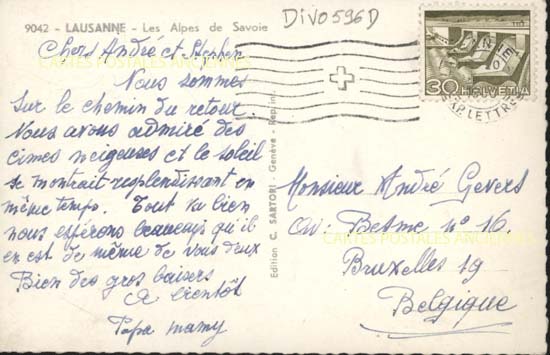 9042 - LAUSANNE - Les Alpes de Savoie
DIV0596D
Chers André et Stephen
Nous sommes
Sur le chemin du retour.
Nous avons admiré des
cimes neigeuses et le soleil
se montrait resplendissant en
même temps. Tout va bien
nous espérons beaucoup qu'il
en est de même de vous deux
Bien des gros baisers
A bientôt
Papa mamy
Edition C. SARTORI - Genève - Rep. int.
30 HELVETIA
EXP. LETTRES
Monsieur André Gevers
Av: Besme n° 16.
Bruxelles 19
Belgique
CARTES POSTALES ANCIENNES
CARTES POSTALES ANCIENNES